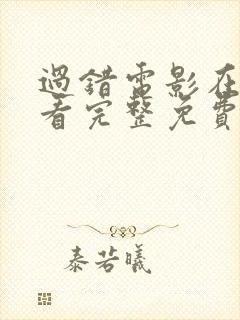 過錯電影在
看完整免費
泰若曦